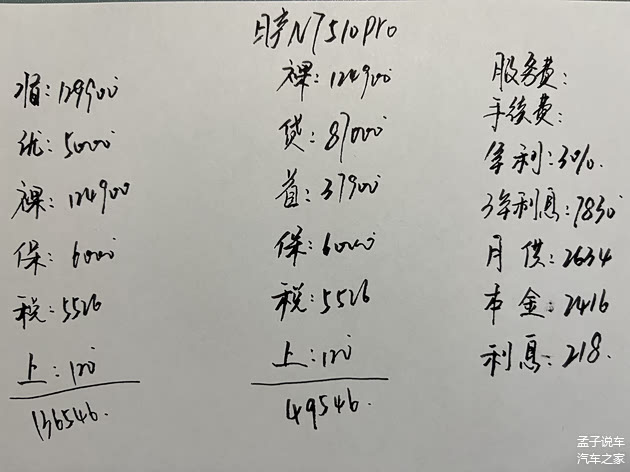 日产N7 510Pro
指：129900
优：5000
裸：124900
保：6000
税：5526
上：120
136546.
裸：124900
贷：87000
首：37900
保：6000
税：5526
上：120
49546.
服务费：
手续费：
年利：3%.
3年利息：7830
月供：2634
本金：2416
利息：218.
孟子说车
汽车之家